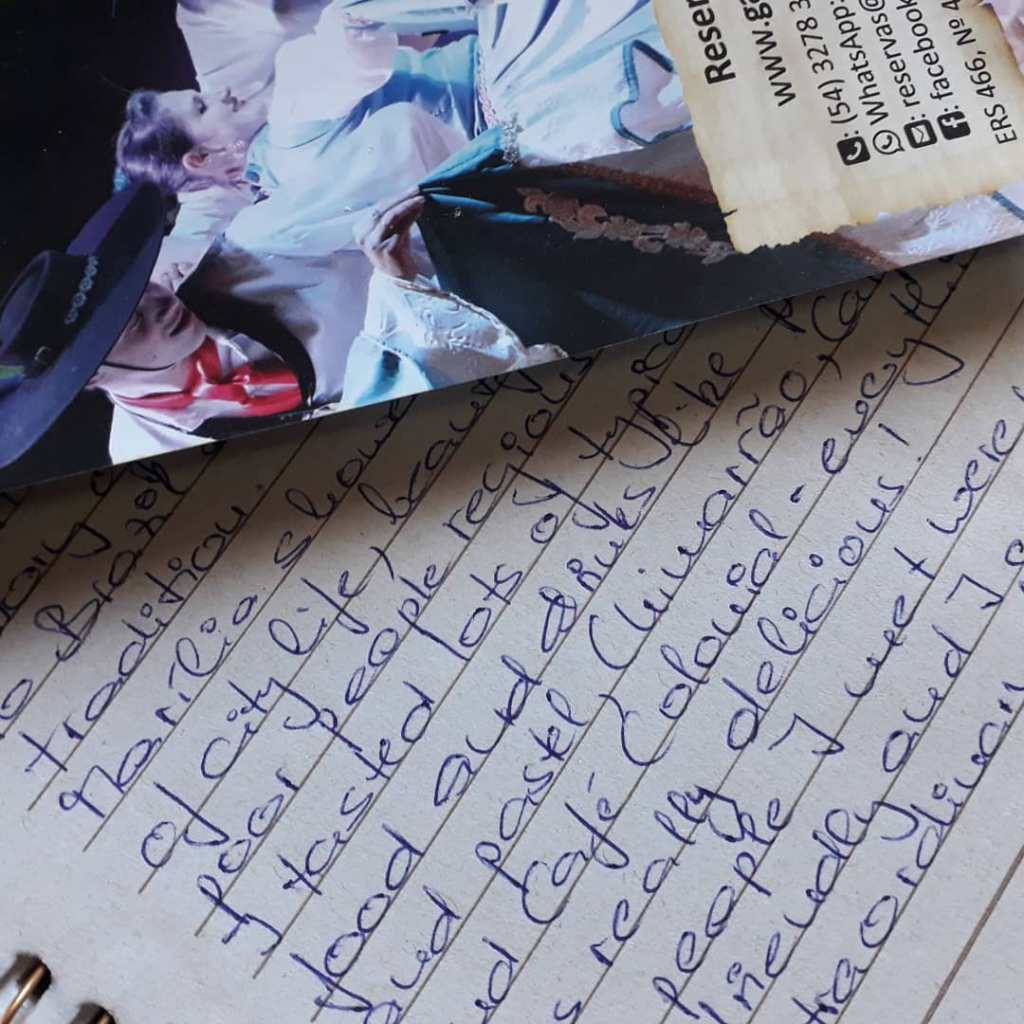 Reser
www.ga
: (54) 3278 3
WhatsApp:
: reservas@
: facebook
ERS 466, Nº4
o Brazil
tradition
Marília show
of city life, beau
poor people region
I tasted lots of typica
food and drinks like
and pastel Chimarrão, Ca
nd Café Colonial - every th
s really delicious!
People I meet were
friendly and I
traordinary